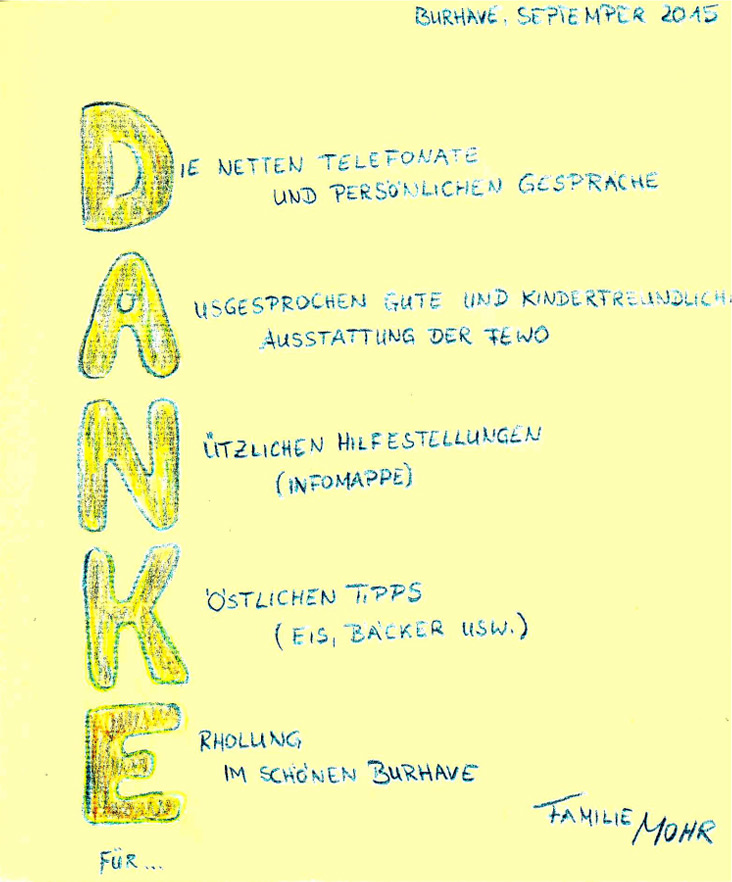 BURHAVE, SEPTEMPER 2015
DIE NETTEN TELEFONATE
UND PERSÖNLICHEN GESPRÄCHE
AUSGESPROCHEN GUTE UND KINDERFREUNDLICH
AUSSTATTUNG DER FEWO
NÜTZLICHEN HILFESTELLUNGEN
(INFOMAPPE)
KÖSTLICHEN TIPPS
(EIS, BÄCKER USW.)
ERHOLUNG
IM SCHÖNEN BURHAVE
FAMILIE MOHR
FÜR...